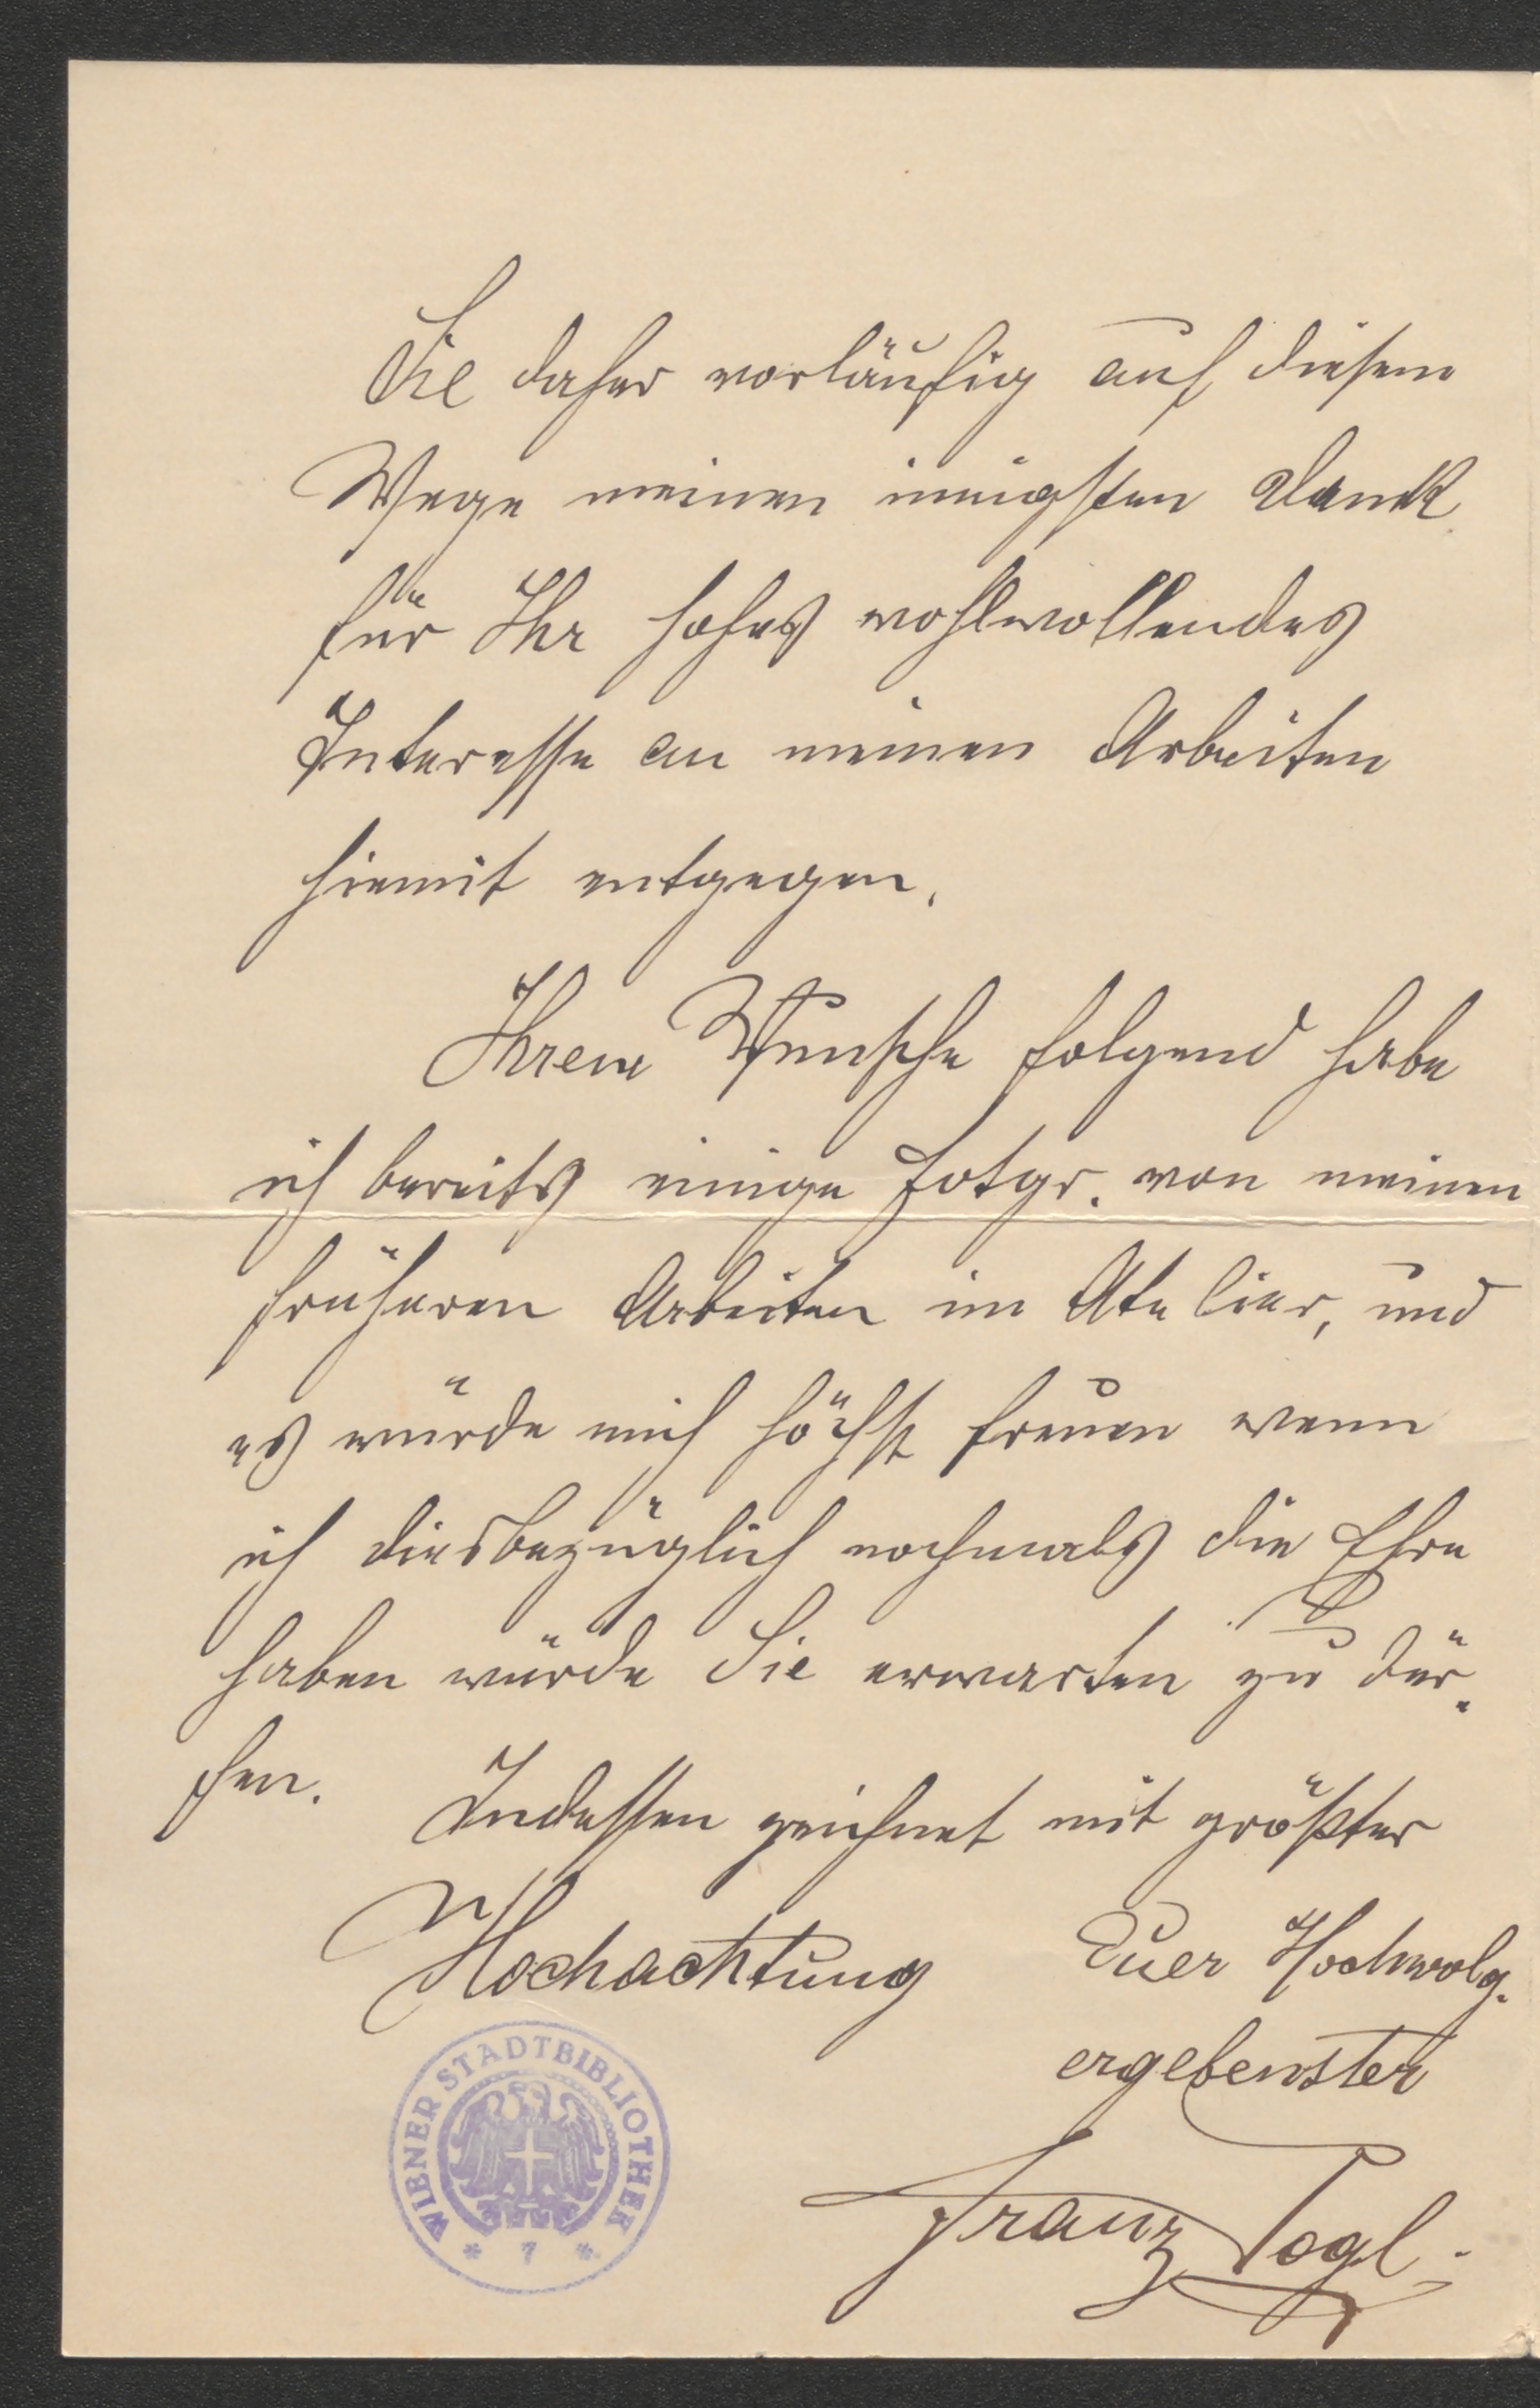 Sie daher vorläufig auf diesem
Wege meinen innigsten Dank
für Ihr hohes wohlwollendes
Interesse an meinen Arbeiten
hiemit entgegen.
Ihrem Wunsche folgend habe
ich bereits einige Fotgr. von meinen
früheren Arbeiten im Atelier, und
es würde mich höchst freuen wenn
ich diesbezüglich nochmals die Ehre
haben würde Sie erwarten zu dür-
fen. Indessen zeichnet mit größter
Hochachtung Euer Hochwolg.
ergebenster
Franz Vogl.
WIENER STADTBIBLIOTHEK
* 7 *